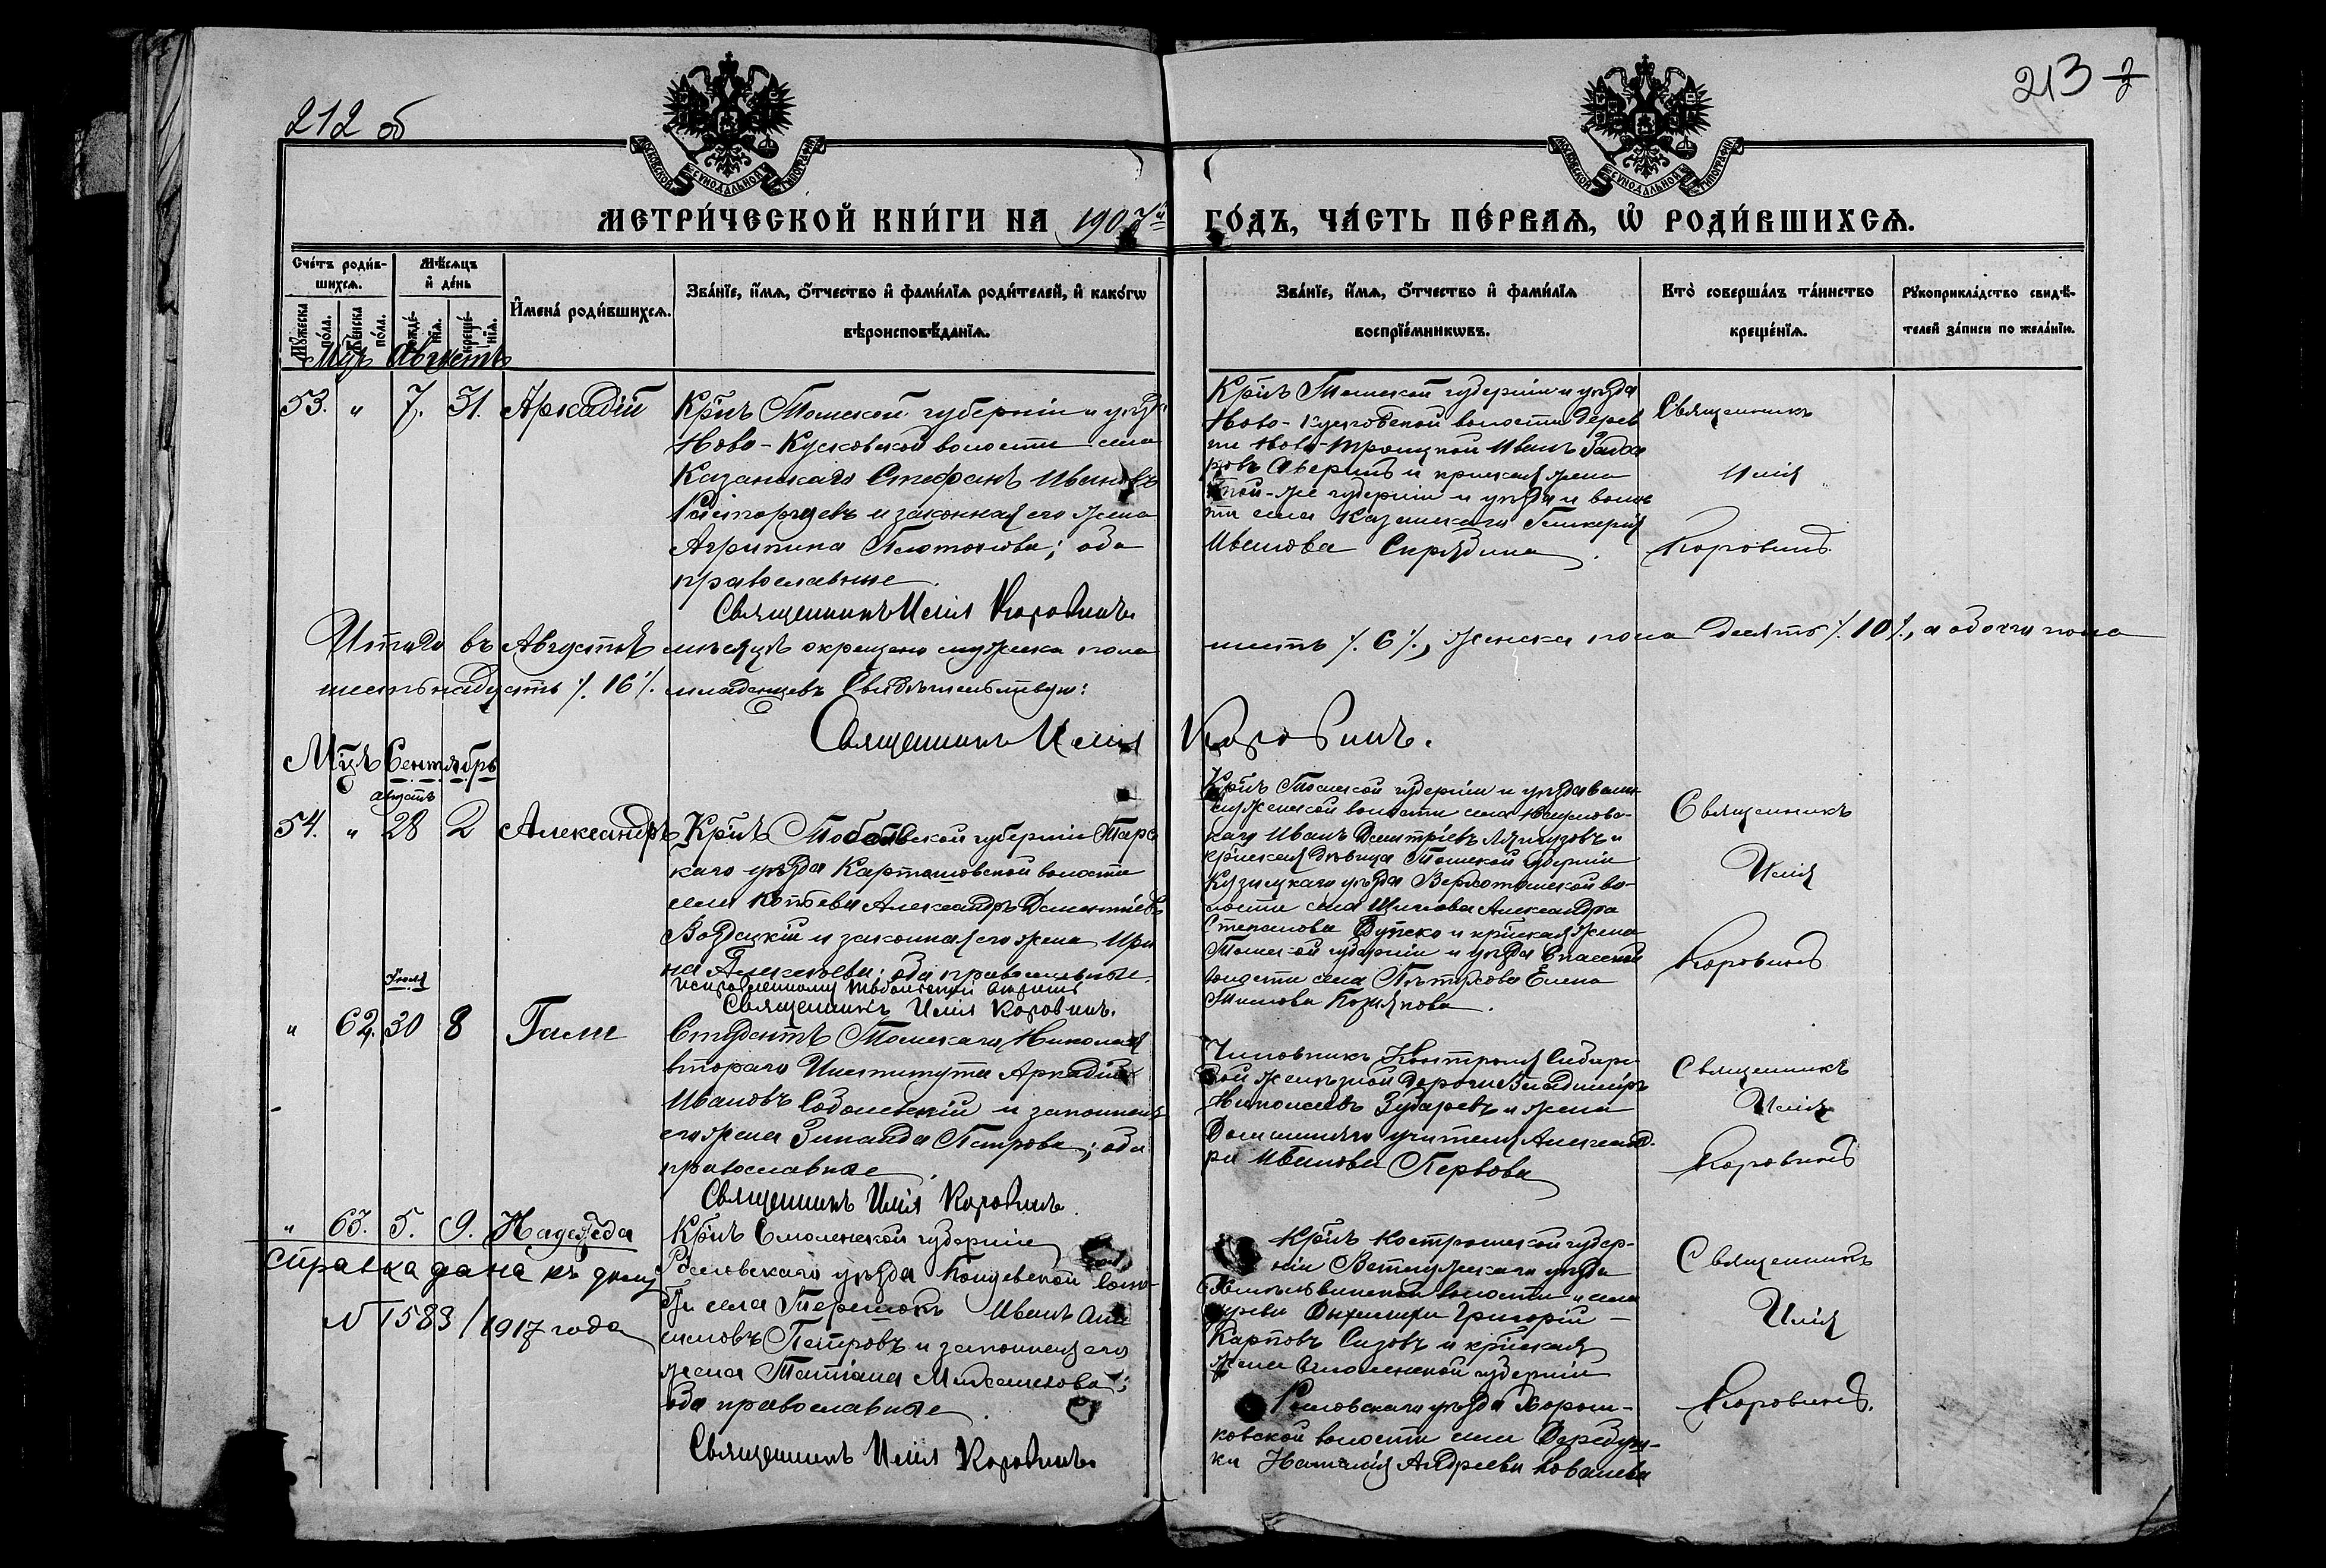 212 об
213
МОСКОВСКОЙ СѴНОДАЛЬНОЙ ТИПОГРАФІИ
МОСКОВСКОЙ СѴНОДАЛЬНОЙ ТИПОГРАФІИ
МЕТРИ́ЧЕСКОЙ КНИ́ГИ НА 1907й ГО́ДЪ, ЧА́СТЬ ПЕ́РВАѦ, Ѡ҆ РОДИ́ВШИХСѦ.
Сче́тъ роди́в-
шихсѧ.
Мꙋ́жеска
по́ла.
Же́нска
по́ла.
Мѣ́сѧцъ
и҆ де́нь
рожде́-
нїѧ.
креще́-
нїѧ.
И҆мена̀ роди́вшихсѧ.
Зва́нїе, и҆́мѧ, ѻ҆́тчество и҆ фами́лїѧ роди́телей, и҆ како́гѡ
вѣроисповѣ́данїѧ.
Зва́нїе, и҆́мѧ, ѻ҆́тчество и҆ фами́лїѧ
воспрїе́мникѡвъ.
Кто̀ соверша́лъ та́инство
креще́нїѧ.
Рꙋкоприкла́дство свидѣ́-
телей за́писи по жела́нїю.
Мцъ Августъ
53. " 7. 31. Аркадій
Крнъ Томской губерніи и уѣзда
Ново-Кусковской волости села
Казанскаго Стефанъ Ивановъ
и законная его жена
Агрипина ова; оба
православные.
Священникъ Илія Коровинъ.
Крнъ Томской губерніи и уѣзда
Ново-Кусковской волости дерев
ни Ново-Троицкой Иванъ Заха
ровъ Аверинъ и крнская жена
той-же губерніи и уѣзда и волос
ти села Казанскаго Гликерія
Иванова Скрябина.
Священникъ
Илія
Коровинъ.
Итого въ Августѣ мѣсяцѣ окрещено мужеска пола шесть ٪ 6 ٪, женска пола десять ٪ 10 ٪, а обоего пола
шестьнадцать ٪ 16 ٪ младенцевъ Свидѣтельствую:
Священникъ Илія Коровинъ.
Мцъ Сентябрь
Августъ
54. " 28 2 Александръ
Крнъ Тобольской губерніи Тарс
каго уѣзда Карташовской волости
села Александръ Дементіевъ
и законная его жена Ири
на Алексѣева; оба православные.
Исправленному Тобольской вѣрить
Священникъ Илія Коровинъ.
Крнъ Томской губерніи и уѣзда
волости села Наумовс-
каго Иванъ Димитріевъ и
крнская дѣвица Томской губерніи
Кузнецкаго уѣзда Верхотомской во-
лости села Щеглова Александра
Степанова и крнская жена
Томской губерніи и уѣзда Спасской
волости села Пѣтухова Елена
Священникъ
Илія
Коровинъ
Іюля
" 62. 30 8 Гали
Студентъ Томскаго Николая
втораго Института Аркадій
Ивановъ Соболевскій и законная
его жена Зинаида Петрова; оба
православные.
Священникъ Илія Коровинъ.
Чиновникъ Контроля Сибирс-
кой желѣзной дороги Владиміръ
Николаевъ Зубаревъ и жена
Домашняго учителя Александ-
ра Иванова Первова
Священникъ
Илія
Коровинъ
" 63. 5. 9. Надежда
Справка дана къ дѣлу
N 1583/1917 года
Крнъ Смоленской губерніи
Рославскаго уѣзда волос-
ти села Терешокъ Иванъ
Петровъ и законная его
жена Татіана;
оба православные.
Священникъ Илія Коровинъ.
Крнъ Костромской губер-
ніи Ветлужскаго уѣзда
волости села
Григорій
Карповъ Сизовъ и крнская
жена Смоленской губерніи
Рославскаго уѣзда Хорош-
ковской волости села
ки Наталія Андреева Ковалева
Священникъ
Илія
Коровинъ.